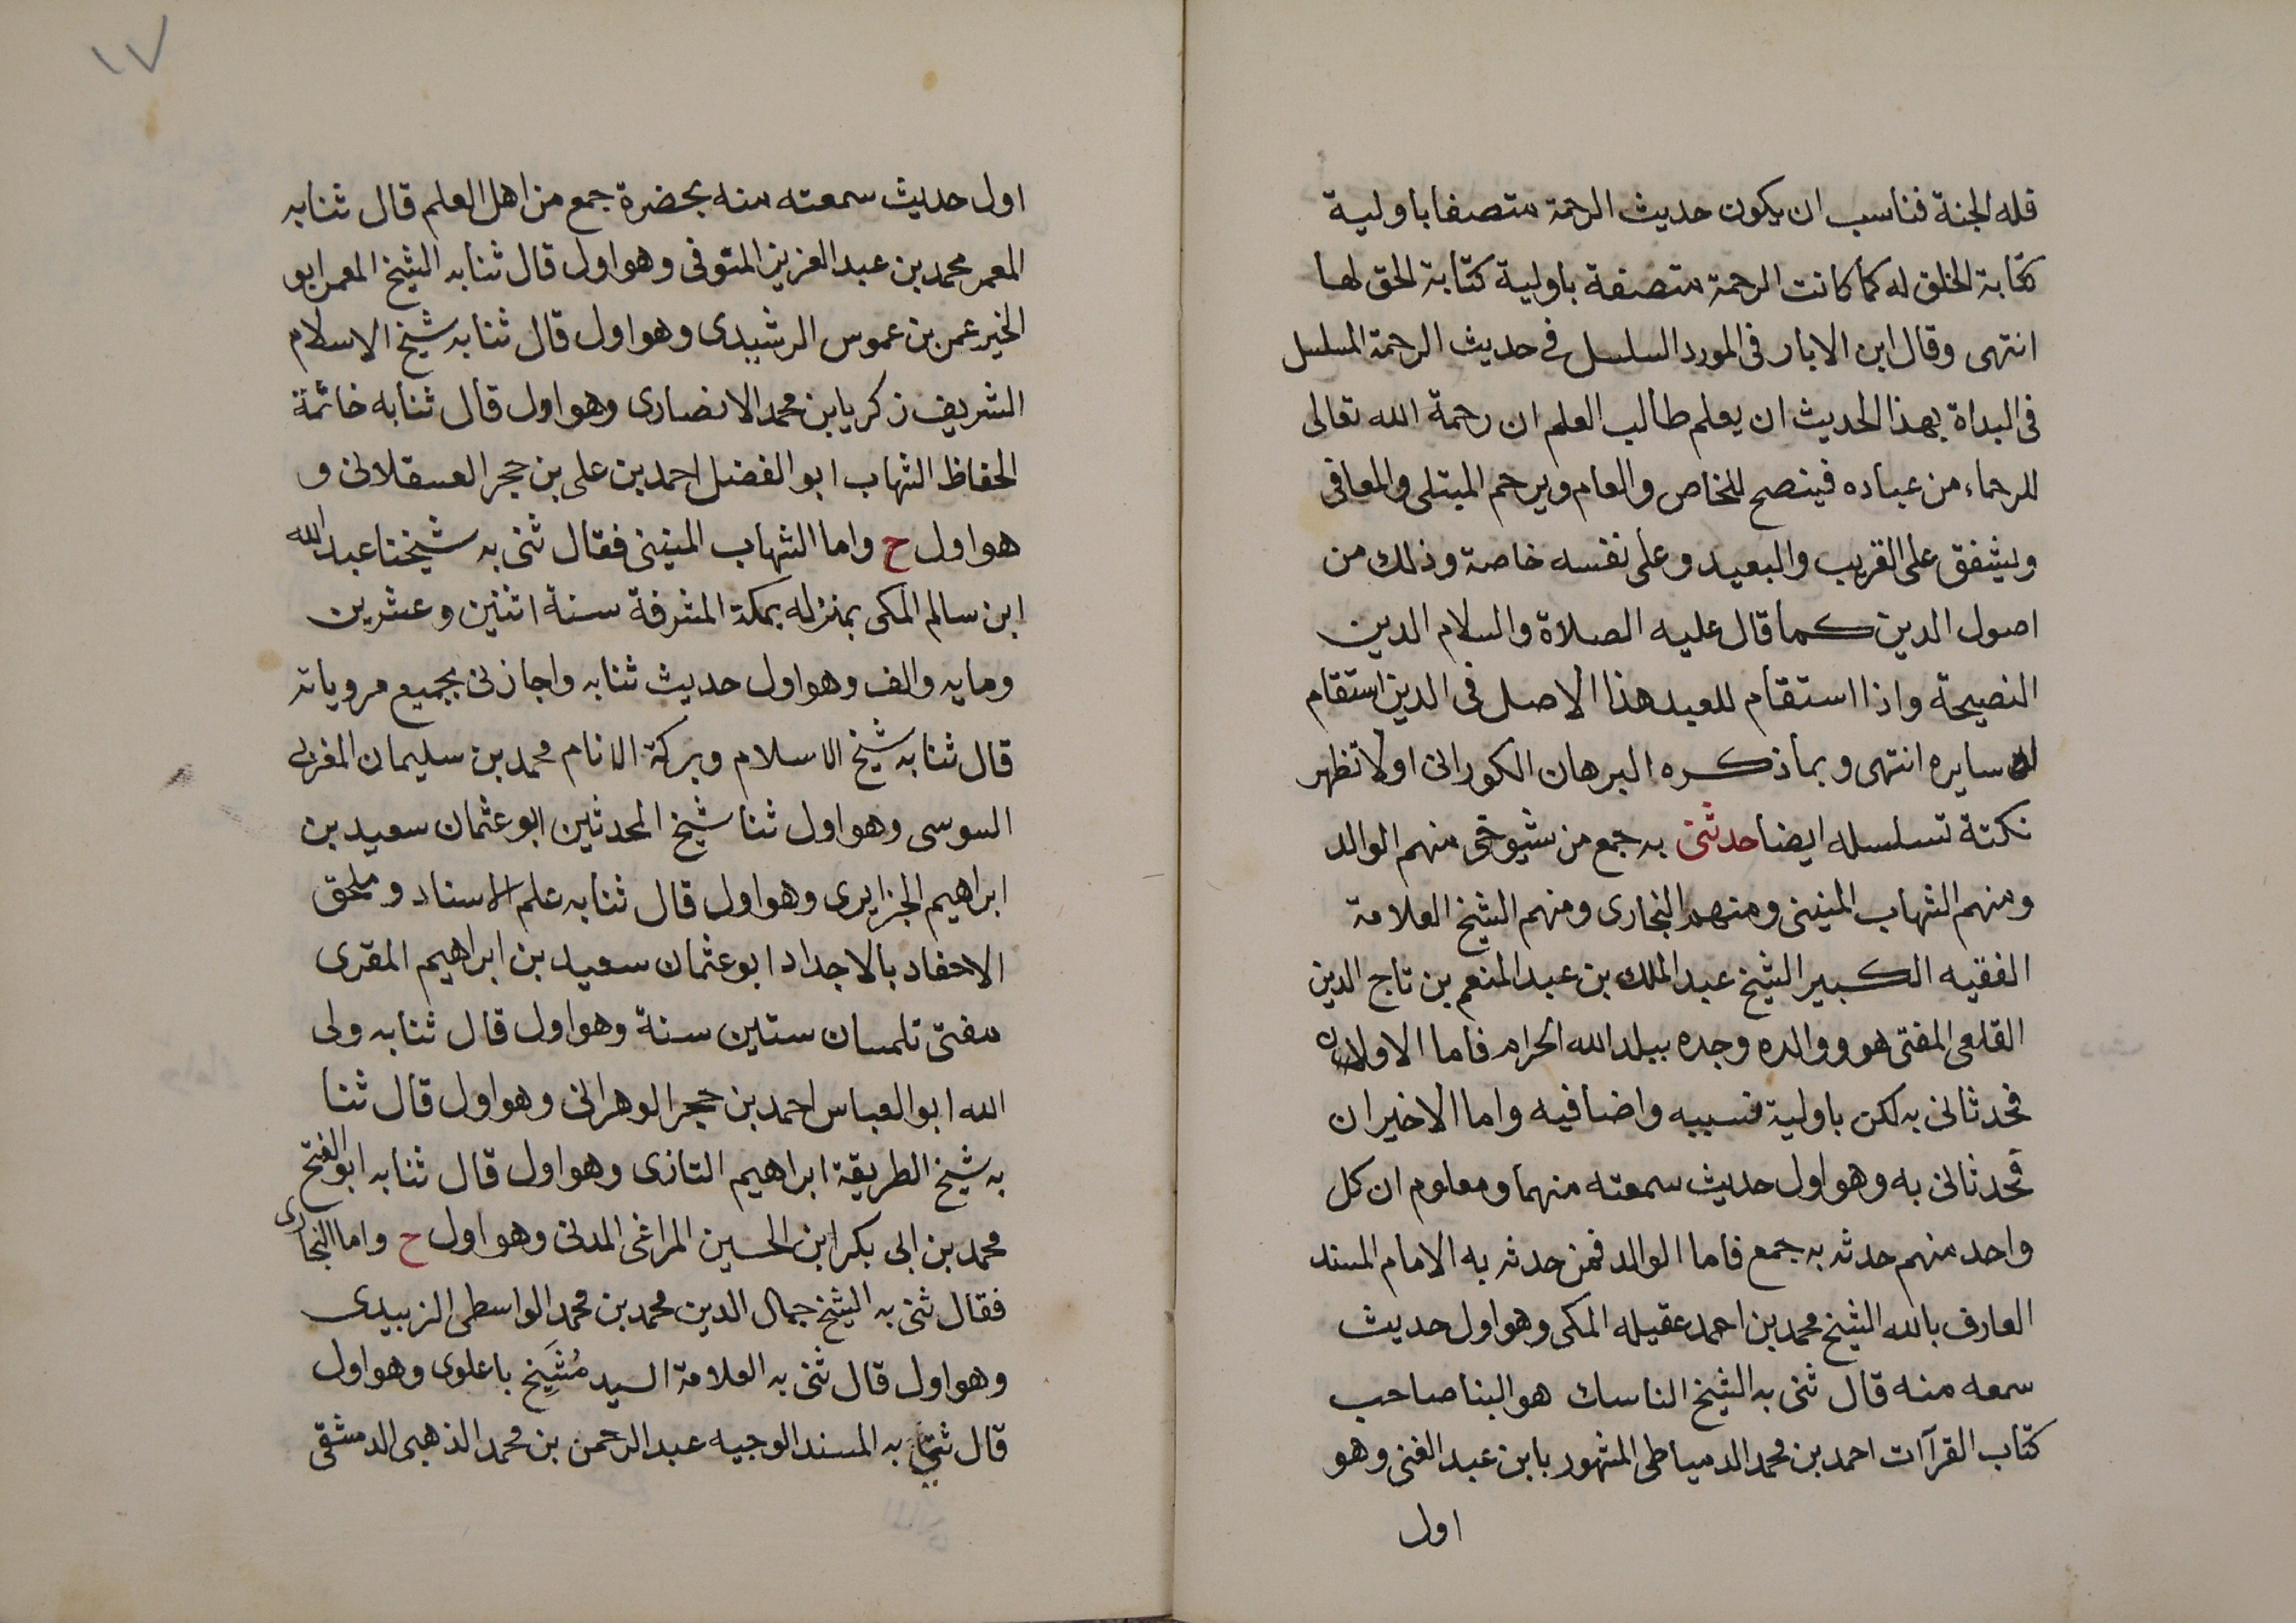 فله الجنة فناسب ان يكون حديث الرحمة متصفا باولية
كتابة الخلق له كما كانت الرحمة متصفة باولية كتابة الحق لها
انتهى وقال ابن الابار فى المورد السلسل فى حديث الرحمة المسلسل
فى البداة بهذا الحديث ان يعلم طالب العلم ان رحمة الله تعالى
للرحماء من عباده فينصح للخاص والعام ويرحم المبتلى والمعافى
ويشفق على القريب والبعيد وعلى نفسه خاصة وذلك من
اصول الدين كما قال عليه الصلاة والسلام الدين
النصيحة واذا استقام للعبد هذا الاصل فى الدين استقام
له سايره انتهى وبما ذكره البرهان الكورانى اولا تظهر
نكتة تسلسله ايضا حدثنى به جمع من شيوخى منهم الوالد
ومنهم الشهاب المنينى ومنهم البخارى ومنهم الشيخ العلامة
الفقيه الكبير الشيخ عبد الملك بن عبد المنعم بن تاج الدين
القلعى المفتى هو ووالده وجده ببلد الله الحرام فاما الاولان
فحدثانى به لكن باولية نسبيه واضافيه واما الاخيران
فحدثانى به وهو اول حديث سمعته منهما ومعلوم ان كل
واحد منهم حدثه به جمع فاما الوالد فمن حدثه به الامام المسند
العارف بالله الشيخ محمد بن احمد عقيله المكى وهو اول حديث
سمعه منه قال ثنى به الشيخ الناسك هو البنا صاحب
كتاب القرآات احمد بن محمد الدمياطى المشهور بابن عبد الغنى وهو
اول
١٧
اول حديث سمعته منه بحضرة جمع من اهل العلم قال ثنا به
المعمر محمد بن عبد العزيز المتوفى وهو اول قال ثنا به الشيخ المعمر ابو
الخير عمر بن عموس الرشيدى وهو اول قال ثنا به شيخ الاسلام
الشريف زكريا بن محمد الانصارى وهو اول قال ثنا به خاتمة
الحفاظ الشهاب ابو الفضل احمد بن على بن حجر العسقلانى و
هو اول ح واما الشهاب المنينى فقال ثنى به شيخنا عبد الله
ابن سالم المكى بمنزله بمكة المشرفة سنة اثنين وعشرين
ومايه والف وهو اول حديث ثنا به واجازنى بجميع مروياته
قال ثنا به شيخ الاسلام وبركة الانام محمد بن سليمان المغربى
السوسى وهو اول ثنا شيخ المحدثين ابو عثمان سعيد بن
ابراهيم الجزايرى وهو اول قال ثنا به علم الاسناد وملحق
الاحفاد بالاجداد ابو عثمان سعيد بن ابراهيم المقرى
مفتى تلمسان ستين سنة وهو اول قال ثنا به ولى
الله ابو العباس احمد بن حجر الوهرانى وهو اول قال ثنا
به شيخ الطريقة ابراهيم التازى وهو اول قال ثنا به ابو الفتح
محمد بن ابى بكر ابن الحسين المراغى المدنى وهو اول ح واما البخارى
فقال ثنى به الشيخ جمال الدين محمد بن محمد الواسطى الزبيدى
وهو اول قال ثنى به العلامة السيد مُشَيخ باعلوى وهو اول
قال ثنى به المسند الوجيه عبد الرحمن بن محمد الذهبى الدمشقى